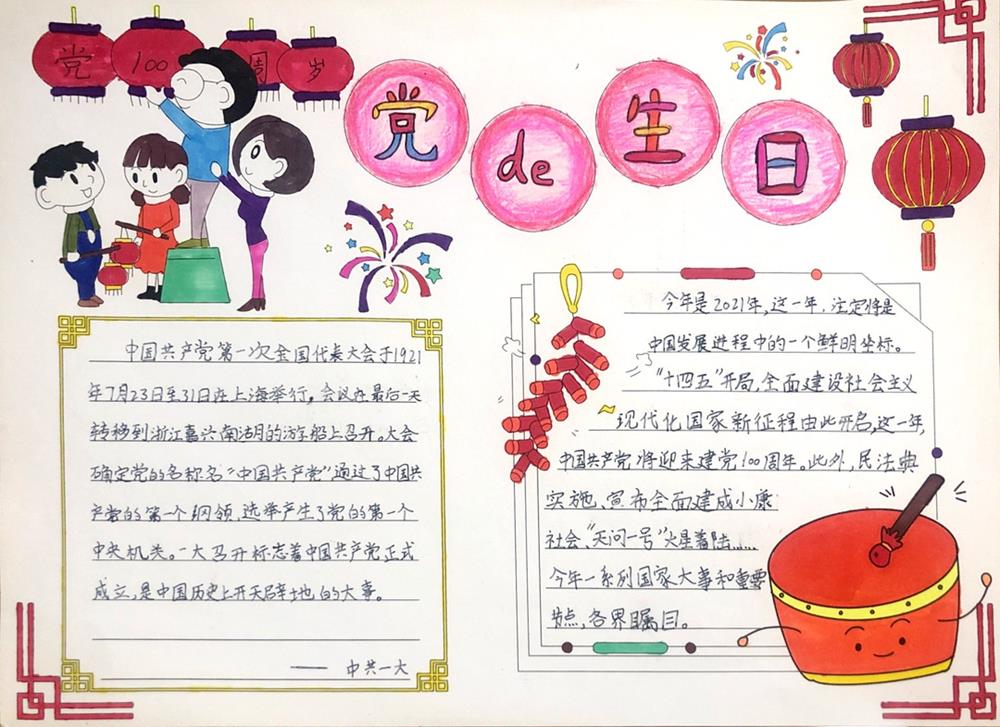 党100周岁
党de生日
中国共产党第一次全国代表大会于1921
年7月23日至31日在上海举行。会议在最后一天
转移到浙江嘉兴南湖的游船上召开。大会
确定党的名称名"中国共产党"通过了中国共
产党的第一个纲领,选举产生了党的第一个
中央机关。一大召开标志着中国共产党正式
成立,是中国历史上开天辟地的大事。
——中共一大
今年是2021年,这一年,注定将是
中国发展进程中的一个鲜明坐标。
"十四五"开局,全面建设社会主义
现代化国家新征程由此开启,这一年,
中国共产党将迎来建党100周年。此外,民法典
实施、宣布全面建成小康
社会、"天问一号"火星着陆……
今年一系列国家大事和重要
节点,各界瞩目。